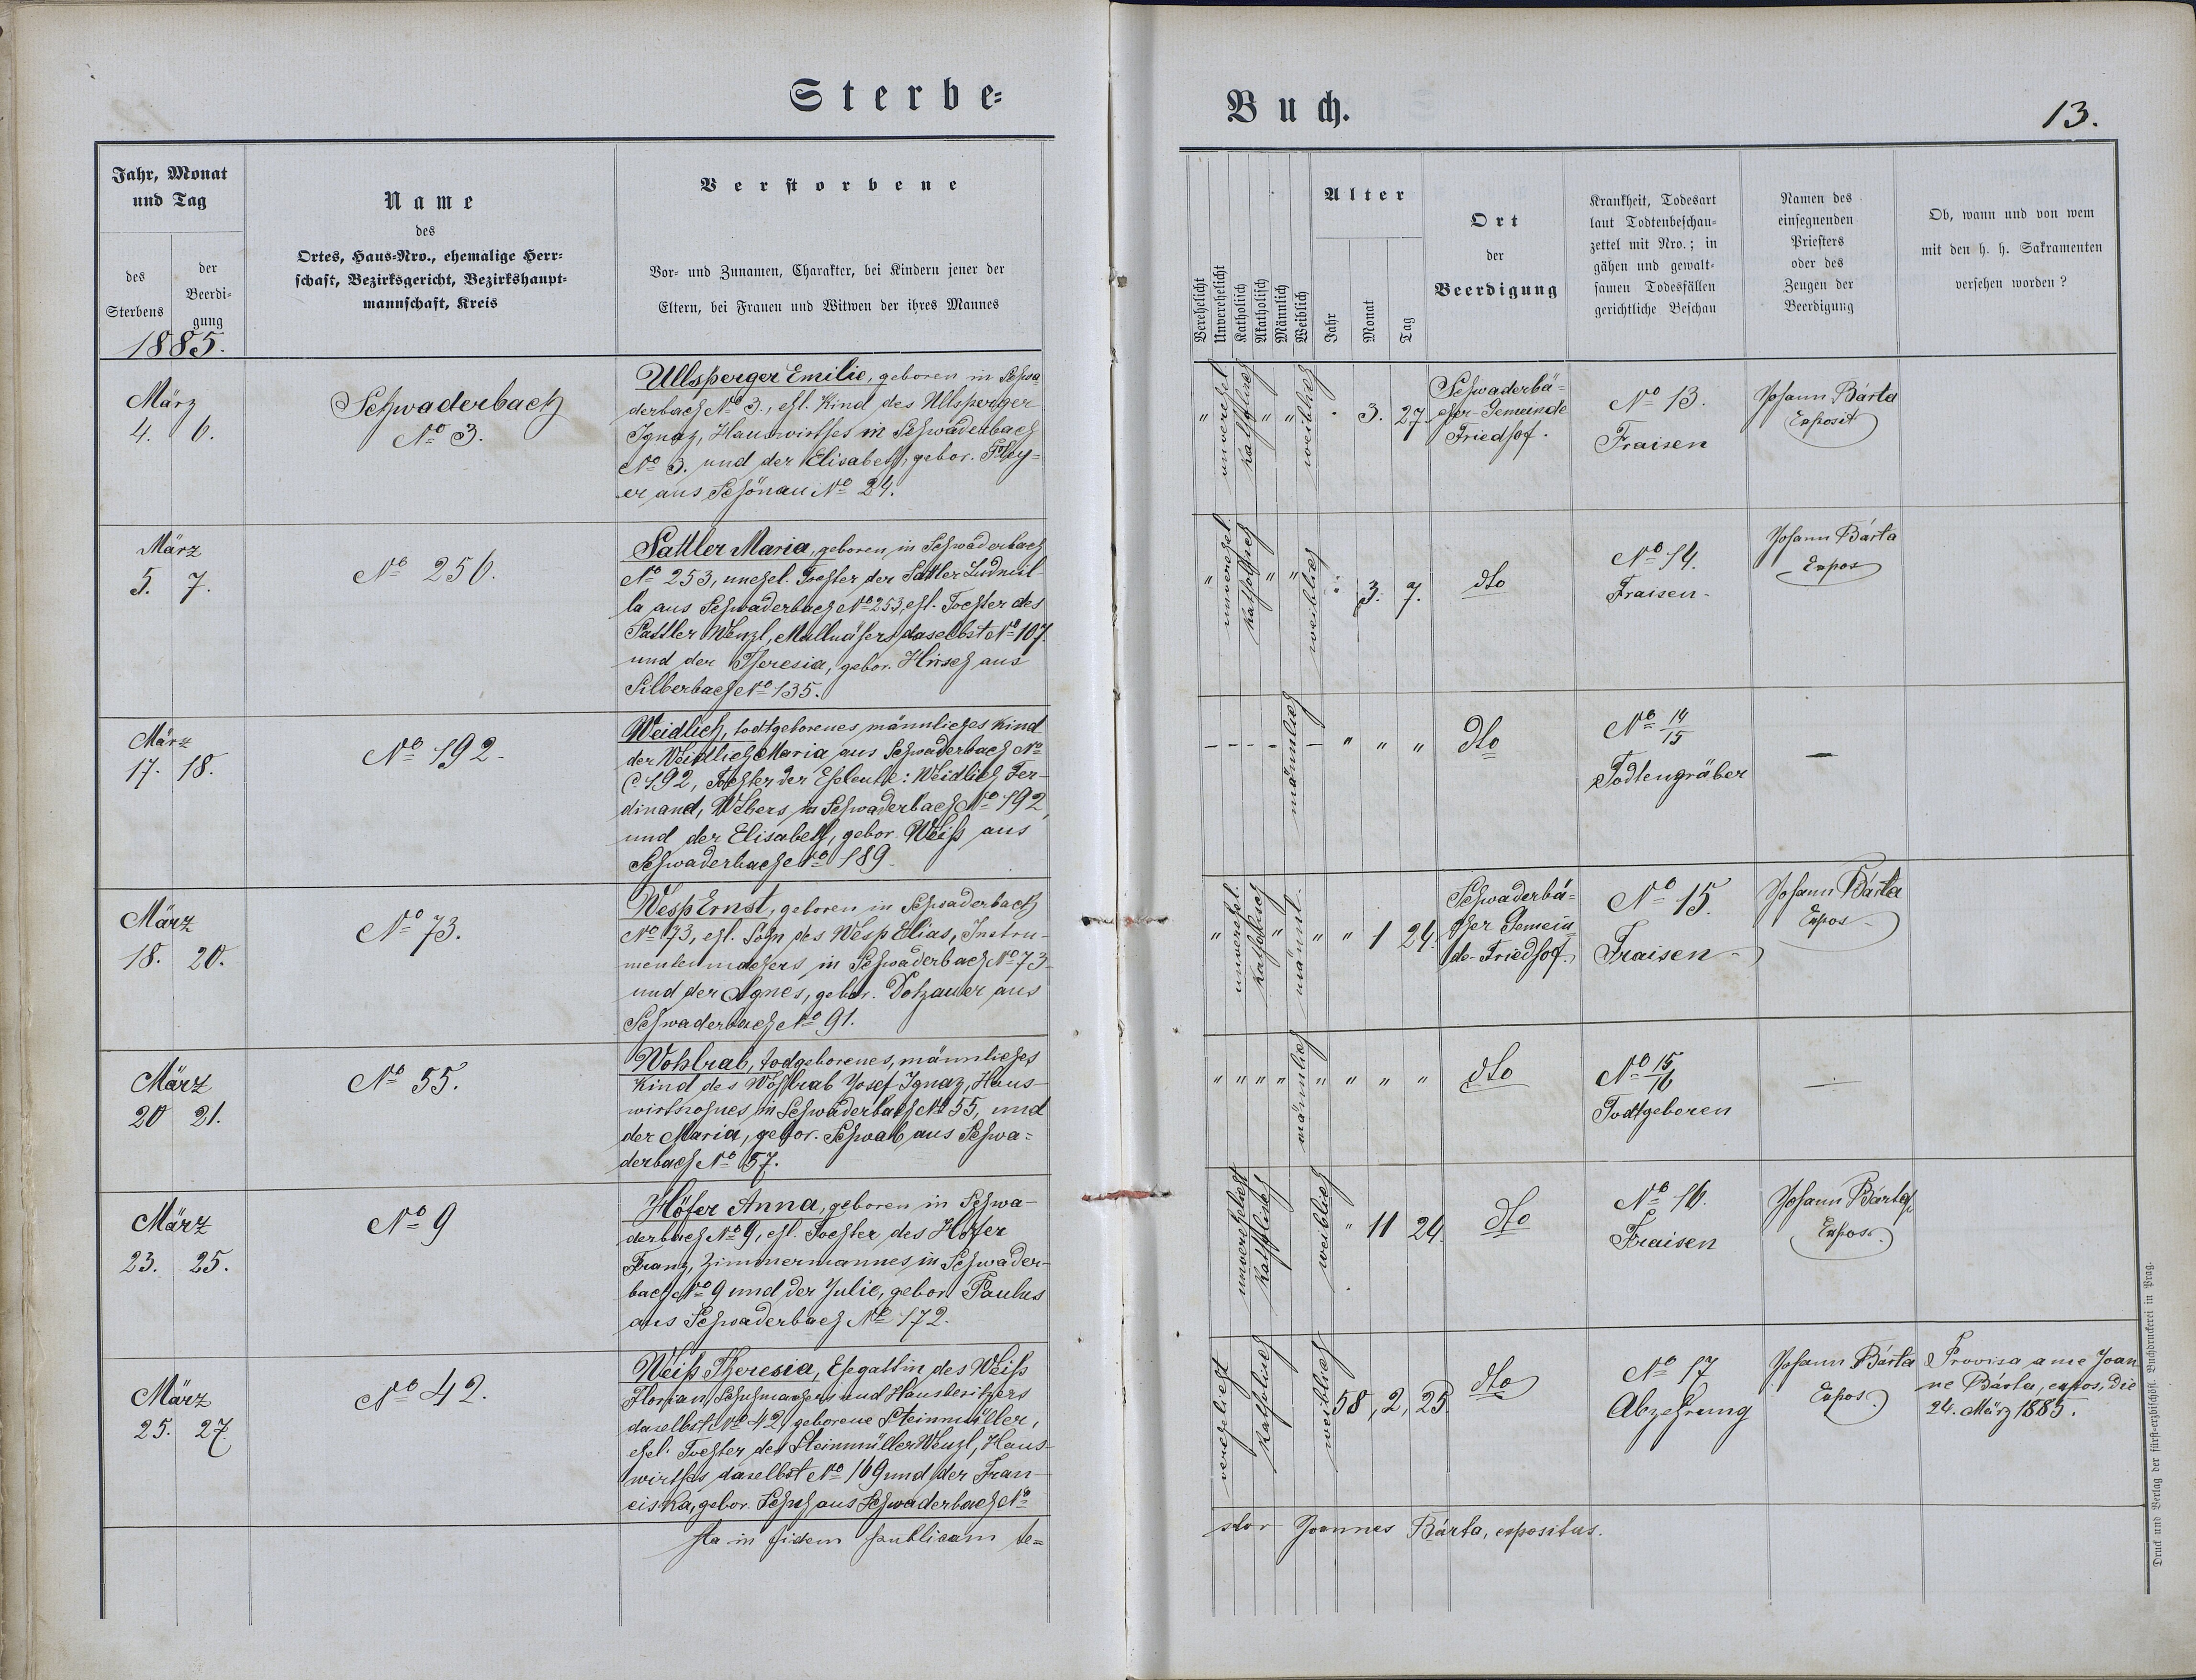 Sterbe=
Buch.
13.
Jahr, Monat
und Tag
des
Sterbens
der
Beerdi-
gung
1885.
Name
des
Ortes, Haus-Nro., ehemalige Herr-
schaft, Bezirksgericht, Bezirkshaupt-
mannschaft, Kreis
Verstorbene
Vor- und Zunamen, Charakter, bei Kindern jener der
Eltern, bei Frauen und Witwen der ihres Mannes
Verehelicht
Unverehelicht
Katholisch
Akatholisch
Männlich
Weiblich
Alter
Jahr
Monat
Tag
Ort
der
Beerdigung
Krankheit, Todesart
laut Todtenbeschau-
zettel mit Nro.; in
gähen und gewalt-
samen Todesfällen
gerichtliche Beschau
Namen des
einsegnenden
Priesters
oder des
Zeugen der
Beerdigung
Ob, wann und von wem
mit den h. h. Sakramenten
versehen worden?
März
4. 6.
Schwaderbach
No 3.
Ullsperger Emilie, geboren in Schwa
derbach No 3., ehl. Kind des Ullsperger
Ignaz, Hauswirthes in Schwaderbach
No 3. und der Elisabeth, gebor. Fley=
er aus Schönau No 24.
" unverehel. katholisch " " weiblich . 3. 27.
Schwaderbä=
cher-Gemeinde
Friedhof.
No 13.
Fraisen
Johann Bárta
Exposit
März
5. 7.
No 256.
Sattler Maria, geboren in Schwaderbach
No 253, unehel. Tochter der Sattler Ludmil-
la aus Schwaderbach No 253, ehl. Tochter des
Sattler Wenzl, daselbst No 107
und der Theresia, gebor. Hirsch aus
Silberbach No 135.
" unverehel. katholisch " " weiblich " 3. 7.
dto
No 14.
Fraisen-
Johann Bárta
Expos
März
17. 18.
No 192.
Weidlich, todtgeborenes männliches Kind
der Weidlich Maria aus Schwaderbach No
C. 192, Tochter der Eheleute: Weidlich Fer-
dinand, Webers in Schwaderbach No 192,
und der Elisabeth, gebor. Weiß aus
Schwaderbach No 189.
- - - - männlich - " " "
dto
No 14/15
Todtengräber
—
März
18. 20.
No 73.
Wesp Ernst, geboren in Schwaderbach
No 73, ehl. Sohn des Wesp Elias, Instru-
mentenmachers in Schwaderbach No 73
und der Agnes, gebor. Dotzauer aus
Schwaderbach No 91.
" unverehel. katholisch " männl. " " 1 24.
Schwaderbä=
cher Gemein
de-Friedhof.
No 15.
Fraisen-
Johann Bárta
Expos
März
20 21.
No 55.
Wohlrab, todgeborenes, männliches
Kind des Wohlrab Josef Ignaz, Haus-
wirtsohnes in Schwaderbach No 55, und
der Maria, gebor. Schwab aus Schwa=
derbach No 57.
" " " " männlich " " " "
dto
No 15/16
Todtgeboren
—
März
23. 25.
No 9
Höfer Anna, geboren in Schwa-
derbach No 9, ehl. Tochter des Höfer
Franz, Zimmermannes in Schwader-
bach No 9 und der Julie, gebor. Paulus
aus Schwaderbach No 172.
unverehelicht katholisch weiblich " 11 24.
dto
No 16.
Fraisen
Johann Bárta
Expos.
März
25. 27.
No 42.
Weiß Theresia, Ehegattin des Weiß
Florian, Schuhmachers und Hausbesitzers
daselbst No 42, geborene Steinmüller,
ehel. Tochter des Steinmüller Wenzl, Haus-
wirthes daselbst No 169 und der Fran-
ciska, gebor. Schuh aus Schwaderbach No
verehelicht katholisch weiblich 58, 2, 25.
dto
No 17
Abzehrung
Johann Bárta
Expos
Provisa a me Joan
ne Bárta, expos, die
24. März 1885.
Ita in fidem publicam te=
stor Joannes Bárta, expositus.
Druck und Verlag der fürst-erzbischöfl. Buchdruckerei in Prag.